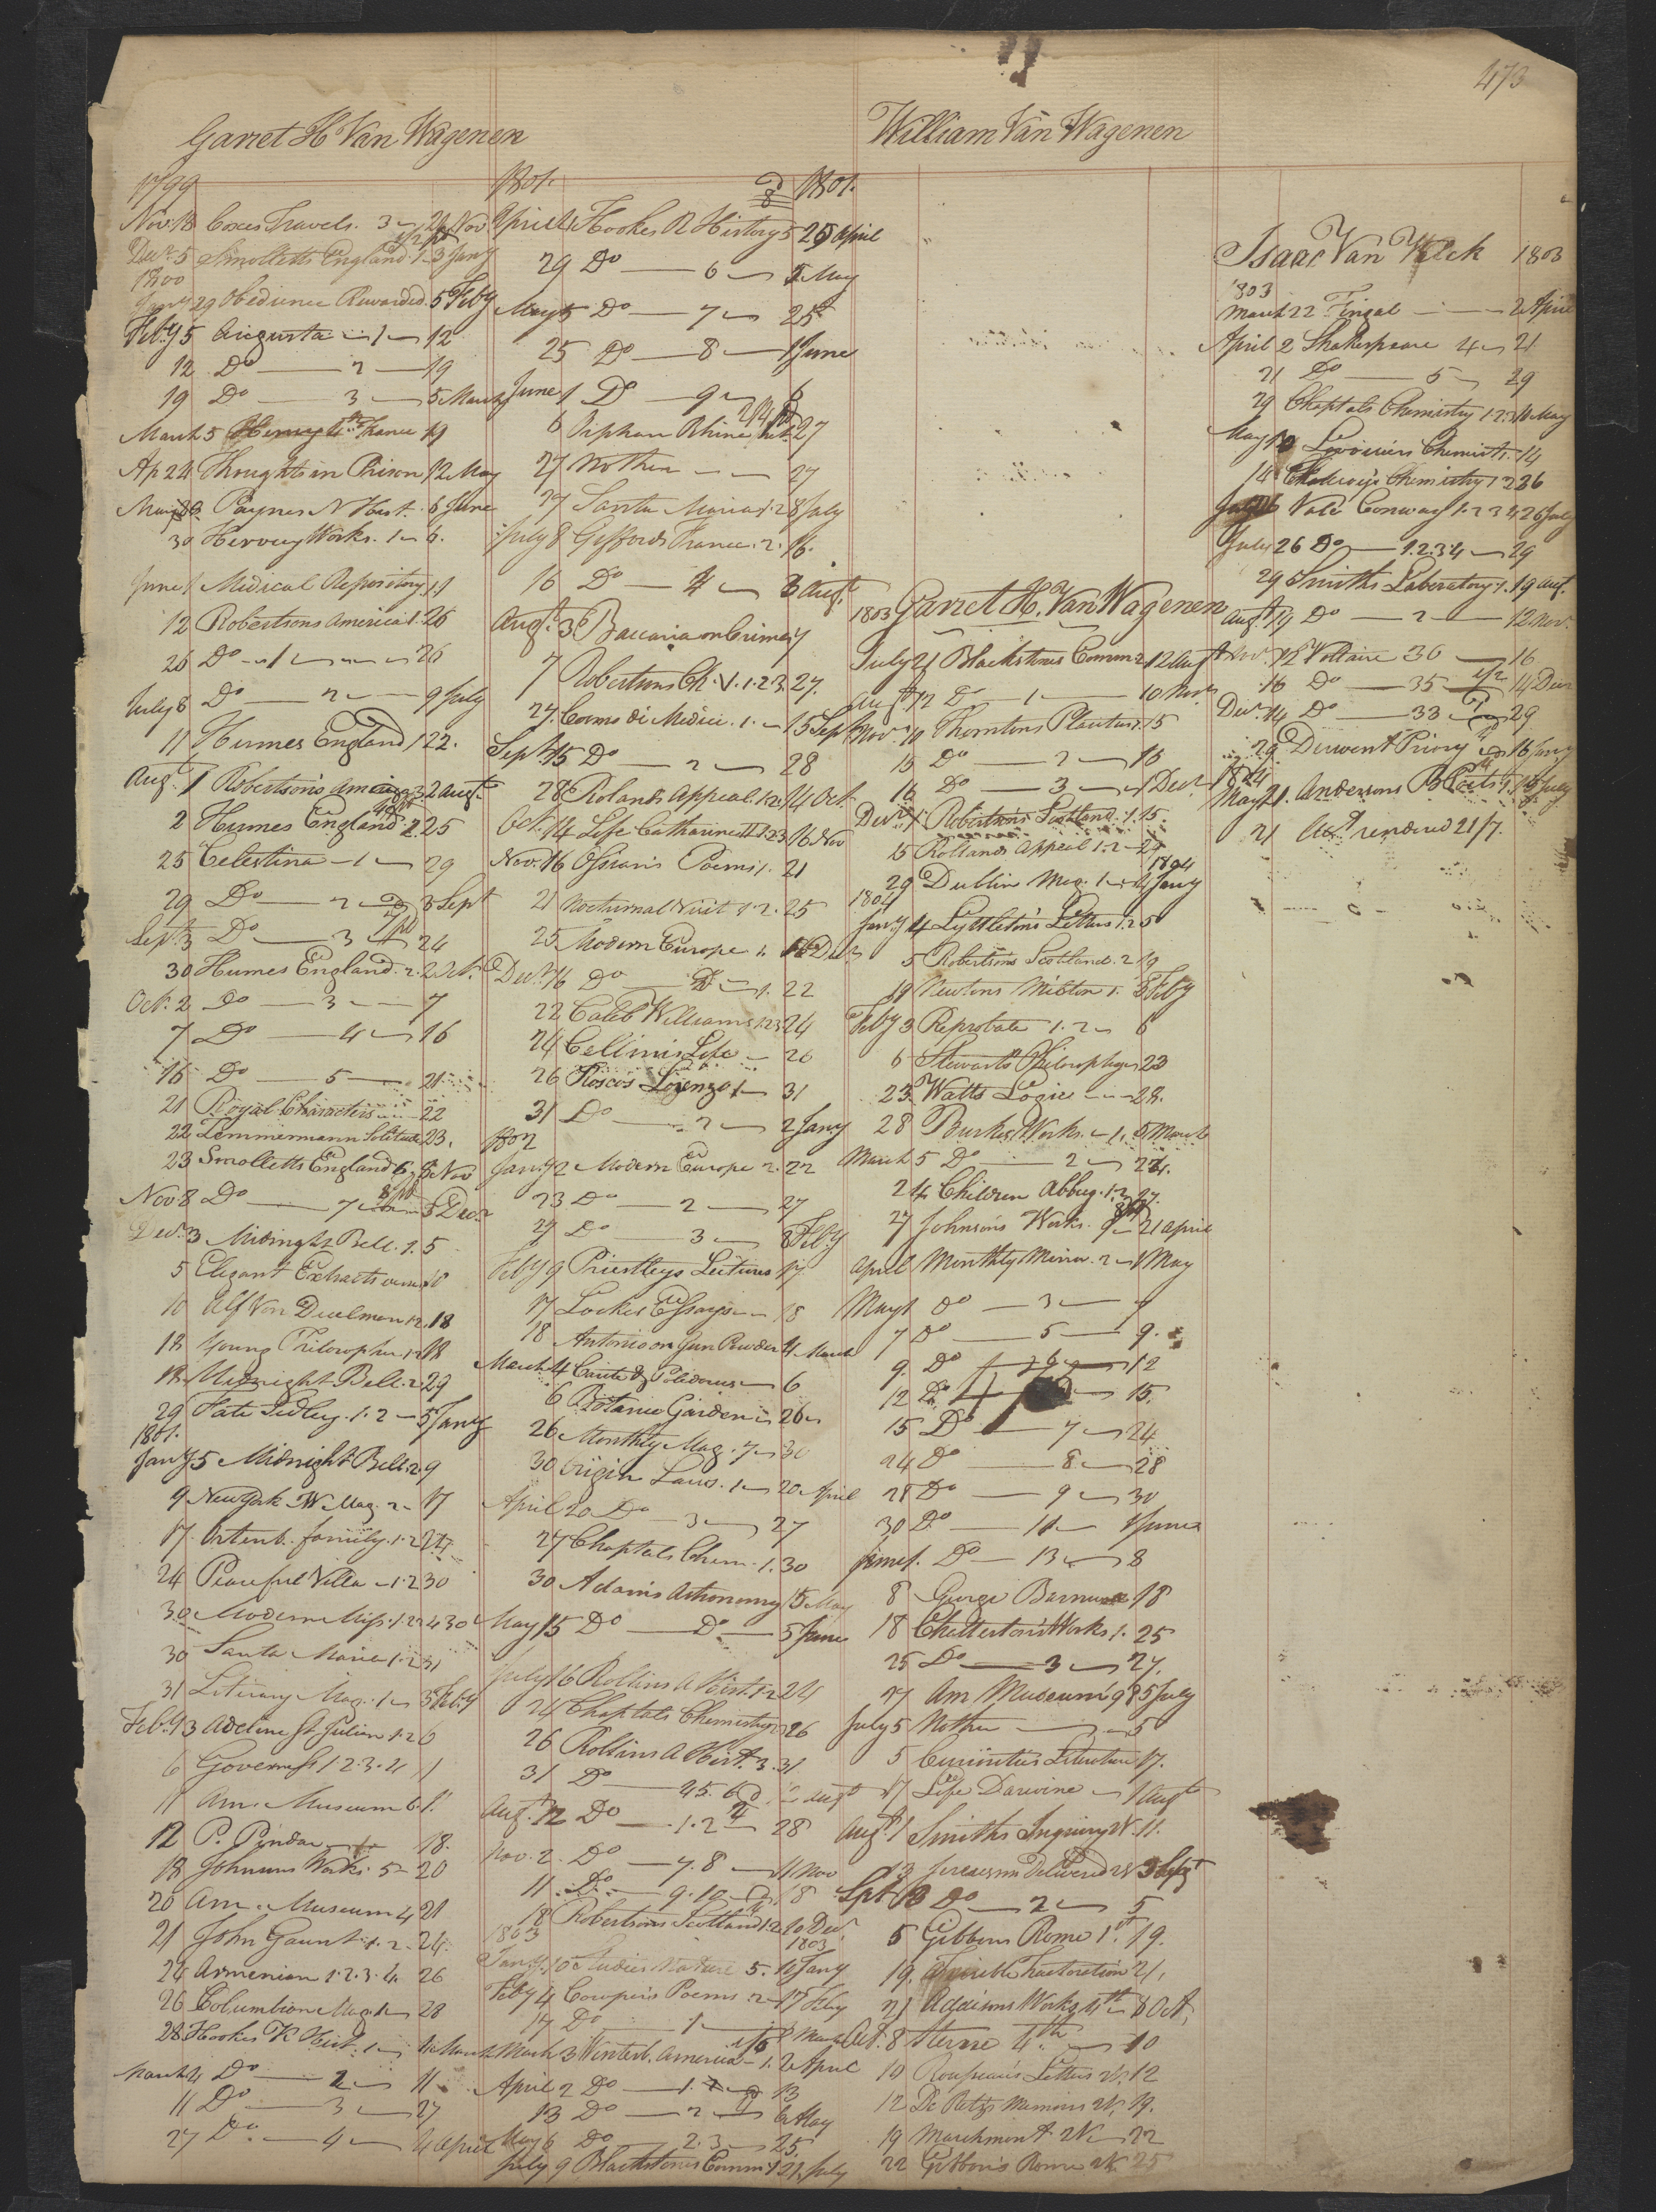 473
Garret H Van Wagenen
1799
Novr 18 Coxes Travels. 3 29 Nov
Decr 5 Smolletts England 1 3 Jany
1800
Jany 29 Obedience Rewarded. 5 Feby
Feby 5 Augusta 1 12
12 Do 2 19
19 Do 3 5 March
March 5 Henry 4th France 19
Ap 24 Thoughts in Prison 12 May
May Paynes N Hist. 6 June
30 Hervey Works. 1 6.
June 1 Medical Repository 11
12 Robertsons America 1. 26
26 Do 1 26
July 8 Do 2 9 July
11 Humes England 1 22.
Augt 1 Robertson's America 3. 2 Augt
2 Humes England 2 25
25 Celestina 1 29
29 Do 2 3 Sept
Sept 3 Do 3 24
30 Humes England. 2. 2 Oct.
Oct. 2 Do 3 7
7 Do 4 16
16 Do 5 21
21 Royal Characters 22
22 Zimmermann Solitude 23.
23 Smolletts England 6 8 Nov
Nov 8 Do 7 3 Decr
Decr 3 Midnight Bell. 1. 5
5 Elegant Extracts 10
10 Alf Von Duelmen 1.2. 18
18 Young Philosopher 1.2 18
18 Midnight Bell. 2 29
29 Kate Sedley. 1. 2 5 Jany
1801.
Jany 5 Midnight Bell. 2. 9
9 New York W Mag. 2 17
17. Ortenb. family. 1. 2 24
24 Peaceful Villa 1. 2 30
30 Modern Miss. 1. 2 30
30 Santa Maria 1. 2 31
31 Literary Mag. 1 3 Feby
Feby 3 Adeline St Julian 1. 2 6
6 Governess 1. 2. 3. 4 11
11 Am. Museum 6.
12 P. Pindar 1. 18.
18 Johnsons Works. 5 20
20 Am. Museum 4 21
21 John Gaunt. 1. 2. 24.
24 Armenian 1. 2. 3. 4. 26
26 Columbian Mag. 28
28 Hookes R Hist. 1 4 March
March 4 Do 2 11
11 Do 3 27
27 Do 4 4 April
1801. 1801.
April 4 Hookes R History 5 29 April
29 Do 6 5 May
May 5 Do 7 25
25 Do 8 1 June
June 1 Do 9 6
6 Orphan Rhine 27
27 Mother 27
27 Santa Maria 1. 2 8 July
July 8 Giffords France. 2. 16.
16 Do 4 3 Augt.
Augt. 3 Baccaria on Crimes 7
7 Robertsons Ch. V. 1. 2. 3. 27.
27. Cosmo di Medici. 1. 15 Sept
Sept 15 Do 2 28
28 Rolands Appeal 1. 2. 14 Oct
Oct. 14 Life Catharine II 1. 2. 3 16 Nov
Nov. 16 Ossian's Poems 1. 21
21 Nocturnal Visit 1. 2. 25
25 Modern Europe 1. 16 Decr
Decr 16 Do 1. 22
22 Caleb Williams 1. 2. 3 24
24 Cellini's Life 26
26 Roscos Lorenzo 1 31
31 Do 2 2 Jany
1802
Jany 2 Modern Europe 2. 22
23 Do 2 27
27 Do 3 8 Feby
Feby 9 Priestleys Lectures 17
17 Lockes Essays 18
18 Antonio 4 March
March 4 6
6 Botanic Garden 26
26 Monthly Mag. 7 30
30 Origin Laws. 1 20 April
April 20 Do 3 27
27 Chaptals Chem. 1. 30
30 Adams Astronomy 15 May
May 15 Do Do 5 June
July 16 Rollins A Hist. 1. 2 24
24 Chaptals Chemistry 26
26 Rollins A Hist. 3. 31
31 Do 4 5. 6 Augt
Augt. 12 Do 1. 2 28
Nov. 2. Do 7. 8 11 Nov
11. Do 9. 10 18
18 Robertsons Scotland 1. 2 10 Decr.
1803 1803
Jany. 10 Studies Nature 5. 4 Jany
Feby 4 Cowper's Poems. 2 17 Feby
17 Do 1
March 3 Winterb. America 1. 2 April
April 2 Do 1. 13
13 Do 2 6 May
May 6 Do 2. 3 25
July 9 Blackstones Comm. 1 21 July
William Van Wagenen
1803 Garret H. Van Wagenen
July 21 Blackstones Comm 2 12 Augt
Augt 12 Do 1 10 Novr
Novr 10 Thorntons Plautus 1. 15
15 Do 2 16
16 Do 3 1 Decr
Decr 1 Robertson's Scotland. 1. 15.
15 Rollands Appeal 1. 2 29
1804
29 Dublin Mag. 1 4 Jany
1804
Jany 4 Lyttleton's Letters 1. 2 5
5 Robertsons Scotland. 2 19
19 Newtons Milton 1. 3 Feby
Feby 3 Reprobate 1. 2 6
6 Stewarts Philosophy 23
23 Watts Logic 28.
28 Burkes Works. 1. 5 March
March 5 Do 2 24.
24 Children Abbey. 1. 2 27.
27 Johnsons Works. 9 21 April
April Monthly Mirror. 2 1 May
May 1 Do 3 7
7 Do 5 9.
9. Do 6 12
12 Do 15.
15 Do 7 24
24 Do 8 28
28 Do 9 30
30 Do 11 1 June
June 1. Do 13 8
8 George Barnwell 18
18 Chatterton's Works 1. 25
25 Do 3 27.
27 Am Museum 9 5 July
July 5 Mother 5
5 Curiosities Literature 17.
17 Life Darwine 1 Augt
Augt 1 Smiths Inquiry 11.
13 Jerusalem Delivered 3 Sept
Sept 3 Do 2 5
5 Gibbons Rome 1. 19.
19. 21.
21 Addisons Works 4th 8 Oct.
Oct. 8 Sterne 4th 10
10 Rousseau's Letters 12
12 De Retz's Memoirs 19.
19 Marchmont 22
22 Gibbon's Rome 25
Isaac Van Vleck 1803
1803
March 22 Fingal 2 April
April 2 Shakespeare 4 21
21 Do 5 29
29 Chaptals Chemistry 1. 2. 10 May
May 10 Lavoisiers Chemist. 14
14 Chemistry 1 2 26
Vale Conway 1. 2 3 4 26 July
July 26 Do 1. 2. 3. 4 29
29 Smiths Laboratory 1. 19 Aug.
Augt 19 Do 2 12 Nov.
Nov. 12 Voltaire 36 16
16 Do 35 14 Decr
Decr. 14 Do 33 29
29 Derwent Priory 16 Jany
1804
May 21. Andersons B Poets 13 July
21 Acct rendered 21/7.